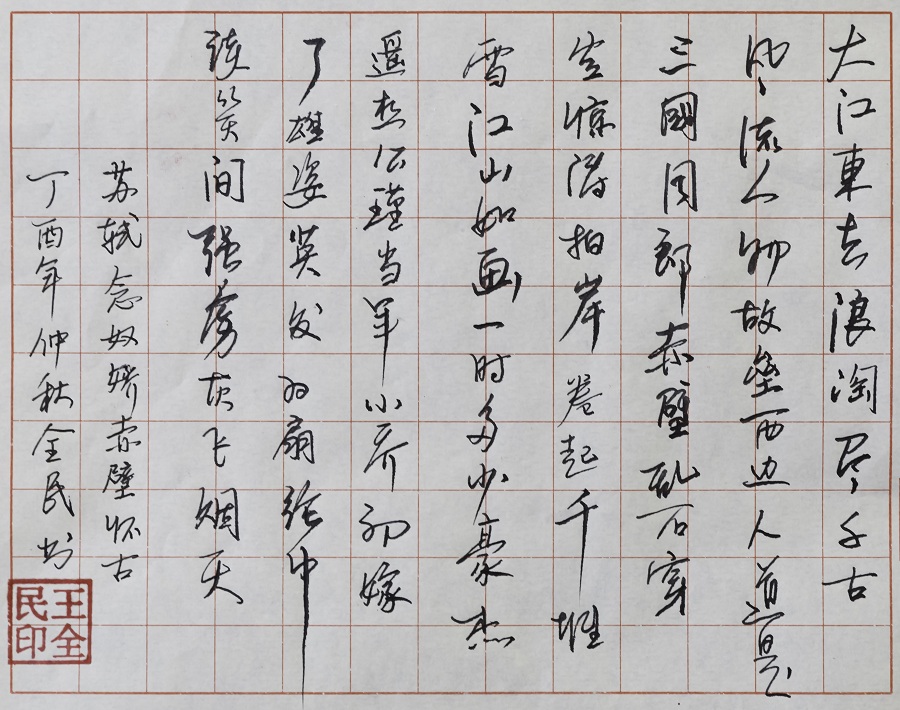 大江東去浪淘尽千古
风流人物故垒西边人道是
三國周郎赤壁乱石穿
空惊涛拍岸卷起千堆
雪江山如画一时多少豪杰
遥想公瑾当年小乔初嫁
了雄姿英发羽扇纶巾
谈笑间强虏灰飞烟灭
苏轼念奴娇赤壁怀古
丁酉年仲秋全民书
王全民印